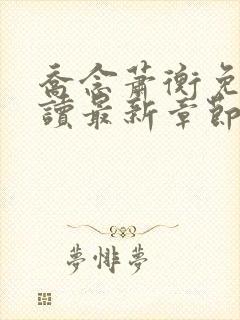 喬念蕭衡免
讀最新章節
夢悱夢